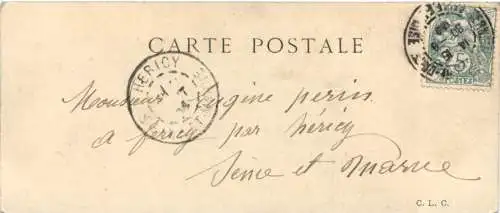 CARTE POSTALE
HERICY
Monsieur Eugène perin
a fericy par héricy
Seine et Marne
C. L. C.